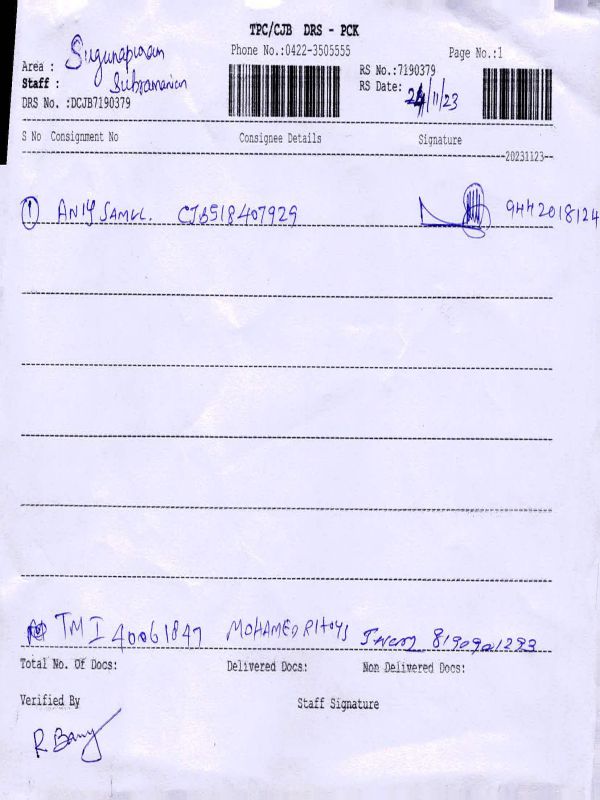 TPC/CJB DRS - PCK
Phone No.:0422-3505555
Page No.:1
Area : Sugunapuram
Staff : Subramanian
RS No.:7190379
RS Date: 24/11/23
DRS No. :DCJB7190379
S No Consignment No Consignee Details Signature
20231123
1 CJB518407929 9442018124
TMI 40061847 MOHAMED 8190901293
Total No. Of Docs: Delivered Docs: Non Delivered Docs:
Verified By Staff Signature